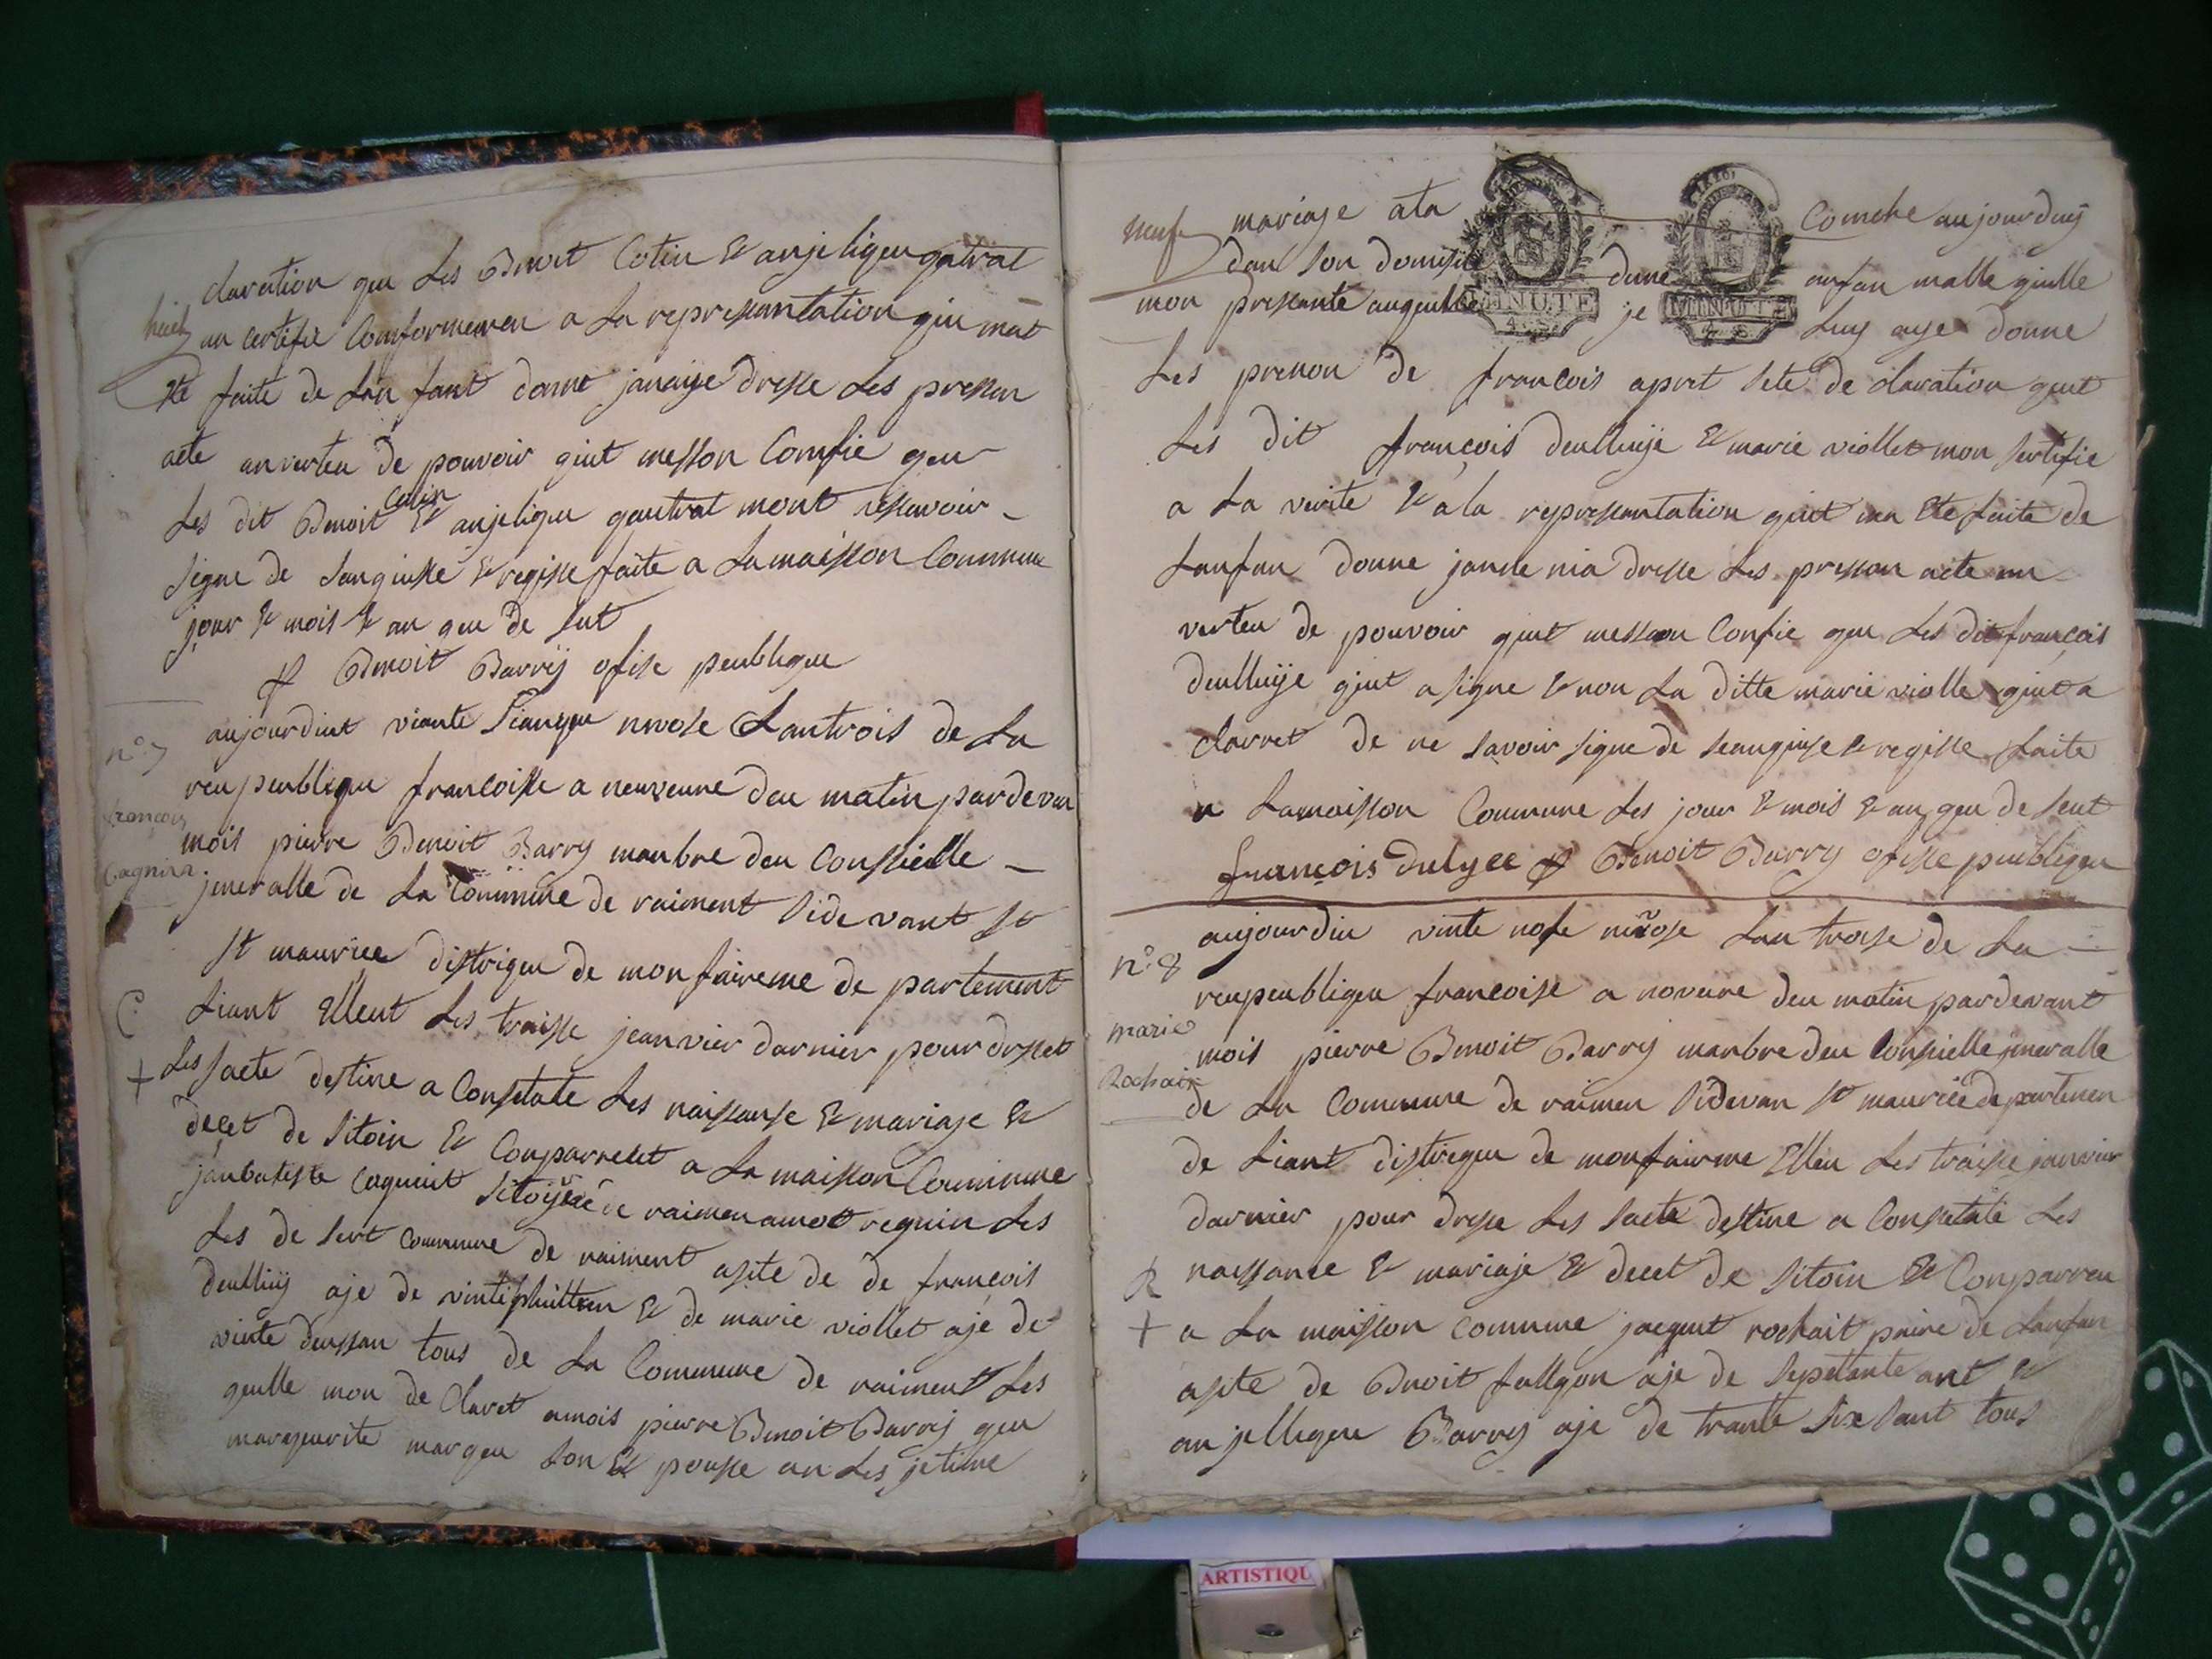 claration que Les Benoit Cotin & anjeliqeu gatrat
huict an certifie Comformemen a La represantation qiu mat
ete faite de Lan fant donne janaije dresse Les pressan
acte anverteu de pouvoir qiut messon Comfie qeu
Les dit Benoit Cotin & anjeliqeu gautrat mont ressavoir
signe de sanqiusse & regisse faite a La maisson Commune
jour & mois & an qeu de sut
Benoit Barrÿ ofise peublique
n° 7
aujourdiut viante Sianqeu nivose Lantrois de La
reupeubliqeu francoisse a neuveure deu matin pardevan
francois
mois pierre Benoit Barry manbre deu Conssielle
Cagnin
jeneralle de La Commune de raiment Sidevant St
St maurice distriqeu de monfaireme de partement
C
Liant Elleut Les traisse jeanvier darnier pour dresset
+
Les sacte destine a Constate Les naissanse & mariage &
decet de sitoin & Conparreset a La maisson Commune
janbatiste Cagniut sitoÿene de raimen amot reqiuin Les
Les de sert commune de raiment asite de de francois
deulluij aje de vintehuittan & de marie viollet aje de
vinte deussan tous de La Commune de raiment Les
qeulle mon de Claret amois pierre Benoit Barry qeu
margeurite margeu son & pousse an Les jetime
neuf
mariage ata Comche aujourduij
dan son domisile dune anfan malle qiulle
mon presante auqeulle je Luy aye donne
MINUTE
MINUTE
Les prenon de francois apret sete de claration qeut
Les dit francois deulluije & marie viollet mon sertifie
a La verite & a la represantation qiut ma Ete faite de
Lanfan donne janne nia dresse Les pressan acte an
verteu de pouvoir qiut messon Confie qeu Les dit francois
deulluije qiut a signe & non La ditte marie violle qiut a
clarret de ne savoir signe de seanqiuse & regisse faite
a Lamaisson Commune Les jour & mois & an qeu de seut
françois dulyee Benoit Barry ofisse peubliqeu
n° 8
aujourdiu vinte nofe nivose Lan troise de La
reupeubliqeu francoise a noveure deu matin pardevant
marie
mois pierre Benoit Barry manbre deu Conssielle jeneralle
Rochair
de La Commune de raimen Sidevan St maurice departemen
de Liant distriqeu de monfairme Elleu Les traisse janvier
darnier pour dresse Les sacte destine a Constate Les
R
naissance & mariaje & decet de sitoin & Conparreu
+
a La maisson commune jacqeut rochait paire de Lanfan
asite de Benoit fallgon aje de sepetante ant &
anjelliqeu Barry aje de trante sixe sant tous
ARTISTIQU